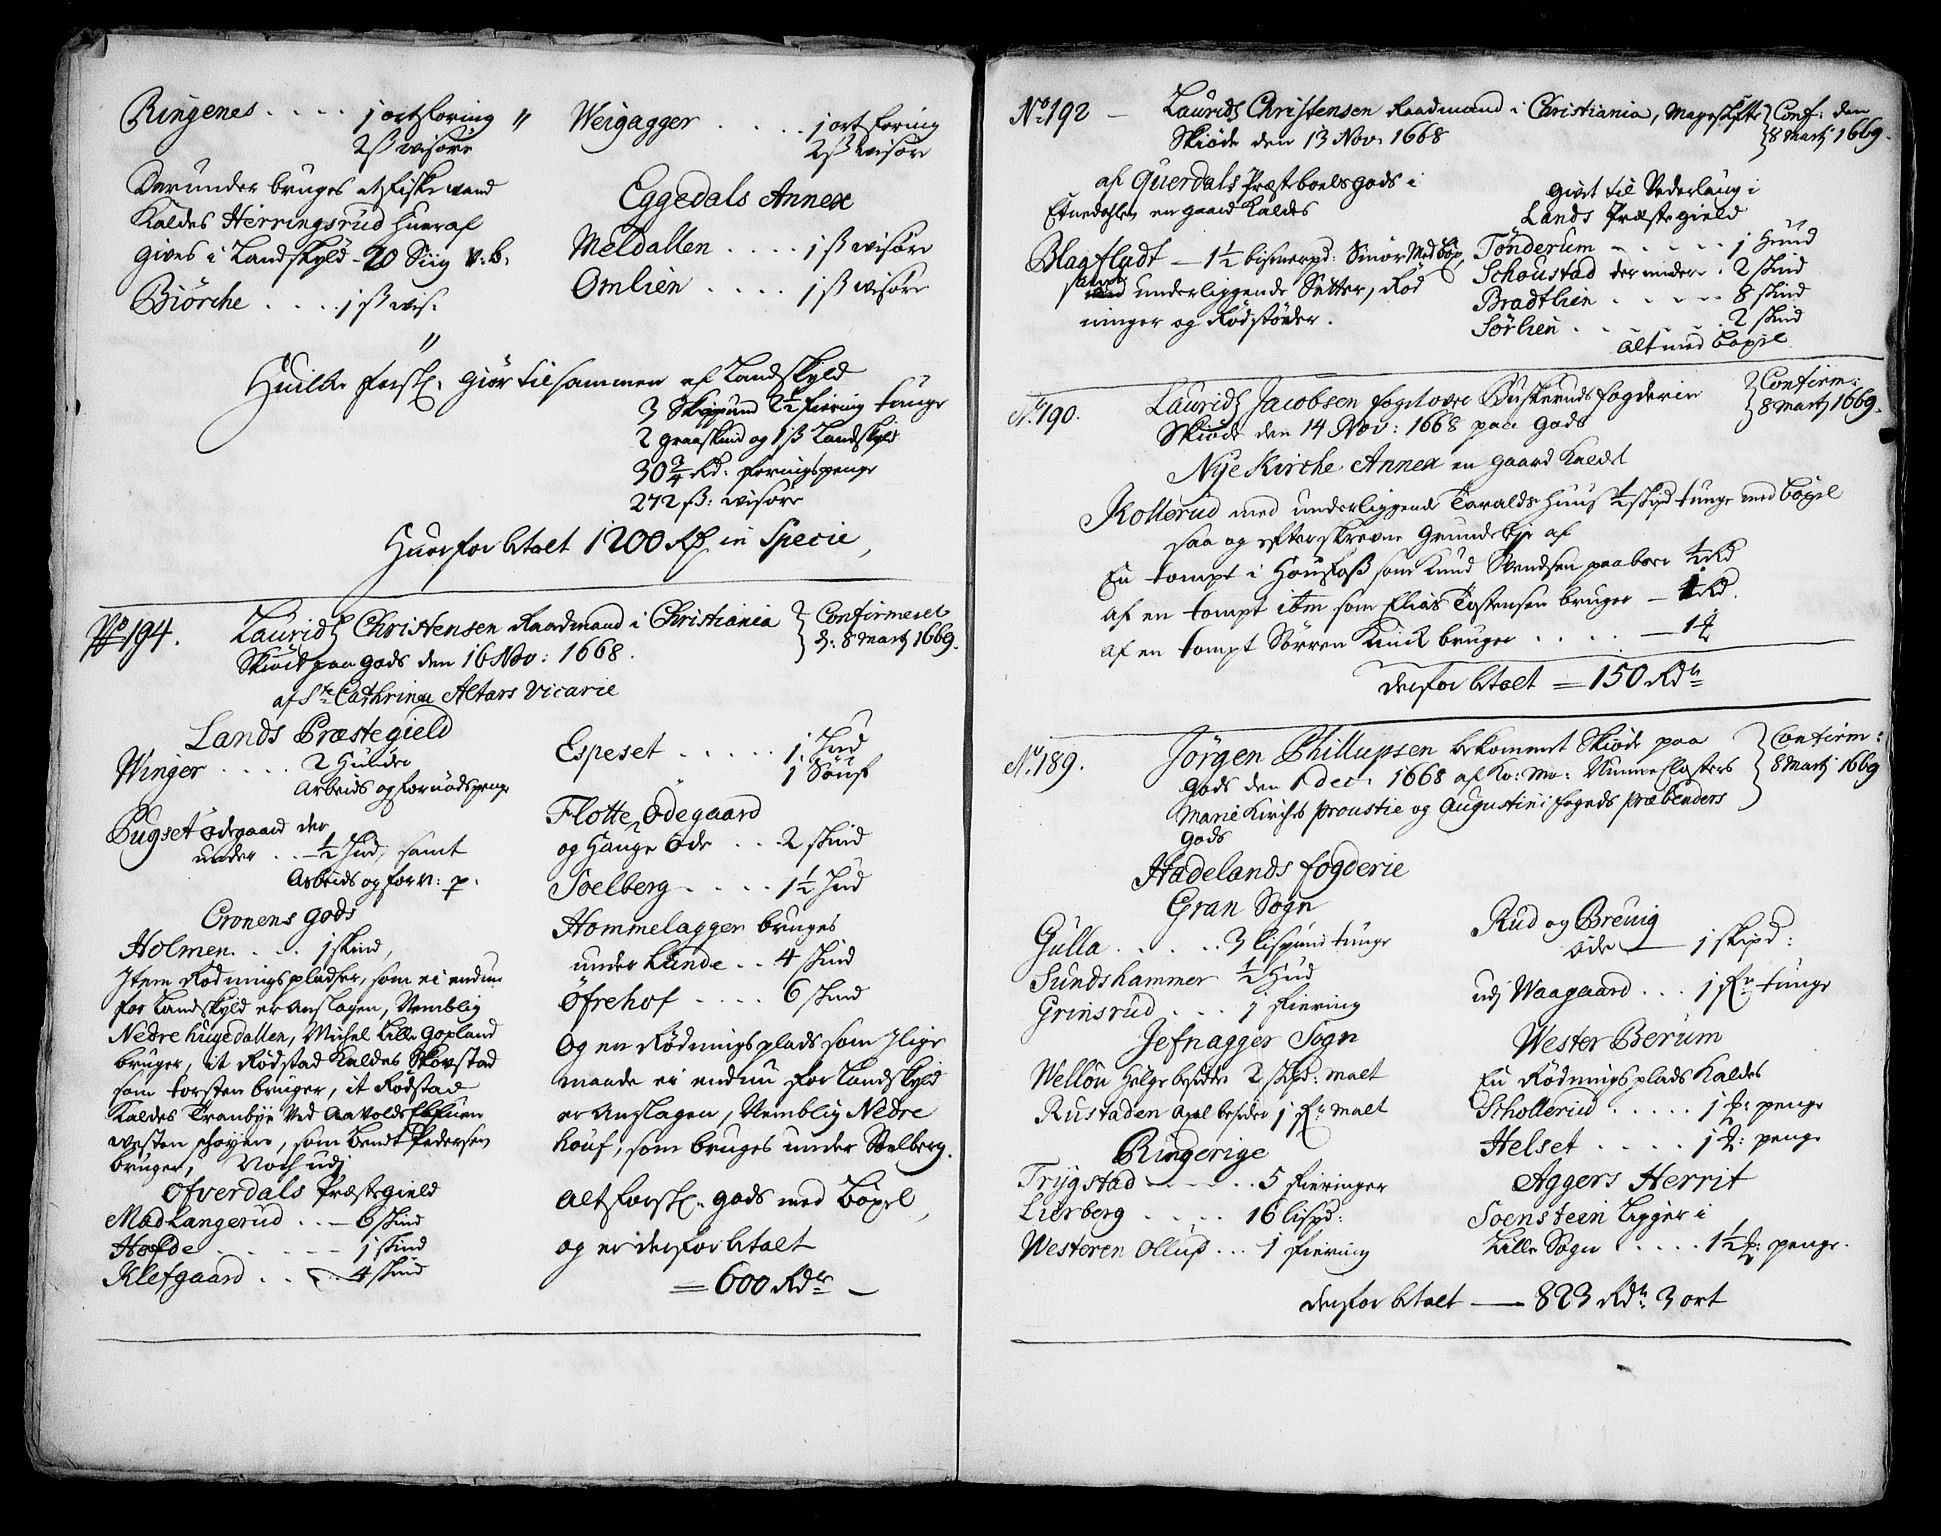 Ringenes . . . . j ort foring "
2 ß wisöre
Derunder bruges et fiskewand
Kaldes Herringsrud hueraf
gives i Landskyld - 20 Siig v: b:
Biörche . . . . 1 ß wis:
"
Weigagger . . . . . j ort foring
2 ß wisöre
Eggedals Annex
Meldallen . . . . 1 ß wisöre
Omlien . . . . 1 ß wisöre
Huilke forskr: giör tilsammen af Landskyld
3 Skippund 2½ Fiering tunge
2 graaskind og 1 ß Landskyld
30 3/4 Rd: foringspenge
272 ß: wisöre
Huorfor btalt 1200 Rd in Specie,
No 194.
Lauridtz Christensen Raadmand i Christiania
Skiöde paa gods den 16 Nov: 1668.
Confirmeret
d: 8 Martj 1669.
af Ste Cathrinæ Altars Vicarie
Lands Præstegield
Winger . . . . 2 Huder
Arbeids og fornödspenge
Pugset ödegaard der
under . . - ½ Hud, samt
Arbeids og forn: p.
Cronens gods
Holmen . . . . 1 skind,
Item Rödningspladser, som ei endnu
for Landskyld er Anslagen, Nemblig
Nedre hugedallen, Michel Lille Gopland
bruger, it Rödstad Kaldes Skovstad
som torsten bruger, it Rödstad
Kaldes Tranbye ved Aavolds Elfuen
westen, som bendt Pedersen
bruger, Noch udj
Ofverdals Præstegield
Madlangerud . . - 6 skind
Hofde . . . . . 1 skind
Klefgaard . . . . 4 skind
Espeset . . . . . 1 Hud
1 Söuf
Flotte Ödegaard
og Hauge Öde . . . 2 skind
Soelberg . . . . 1½ Hud
Hommelagger bruges
under Lunde . . 4 skind
Öfrehof . . . . 6 skind
Og en Rödningsplads som Ilige
maade ei endnu for Landskyld
er Anslagen, Nemblig Nedre
houf, som bruges under Soelberg.
Alt forskr: gods med böxel,
og er derfor btalt
= 600 Rdlr -
No 192 -
Lauridtz Christensen Raadmand i Christiania, Mageskifte
Skiöde den 13 Nov: 1668
Conf: den
8 Martj 1669.
af Querdals Præstboels gods i
Etnedahlen en gaard Kaldes
Blagstadt - 1½ bismerpd: Smör Med böx,
underliggende Sætter, Röd
ninger og Rödstöder.
givet til Vederlaug i
Lands Præstegield
Tönderum - - - - - 1 Hud
Schoustad der under . 2 skind
Bradtlien . . . . . 8 skind
Sörlien . . . . . 2 skind
Alt med böxel
No 190.
Lauridtz Jacobsen fogd over Buskeruds fogderie
Skiöde den 14 Nov: 1668 paa gods
Confirm:
8 Martj 1669.
Nye Kirche Annex en gaard Kaldet
Kollerud med underliggende Taralds Huus ½ skpd tunge med böxel
saa og efterskrevne Grundeleje af
En tompt i Honsfoss som Knud Svendsen paaboer ½ Rd
Af en tompt item som Elias Tostensen bruger - 1 Rd.
Af en tompt Sörren Kinck bruger . . . . - 1 ꝼ
derfor btalt = 150 Rdlr
No 189.
Jörgen Phillupsen bekommet Skiöde paa
gods den 1 Dec: 1668 af Ko: Ma: Nunne Closters
Marie Kirchs Proustie og Augustini fogeds præbenders
gods
Confirm:
8 Martj 1669
Hadelands fogderie
Gran Sogn
Gulla . . . . . 3 lispund tunge
Sundshammer ½ Hud
Grinsrud . . . 1 fiering
Jefnagger Sogn
Wellön Helge besidder 2 skpd: malt
Rustaden Axel besider 1 fr malt
Ringerige
Trygstad - - - . . 5 fieringer
Lierberg . . . . 16 lispd:
Westeren Ollus . . . 1 fiering
Rud og Breuig
öde - 1 skipd:
udj Waagaard . . . 1 fr tunge
Wester Berum
En Rödningsplads Kaldes
Schollerud . . . . . 1 ꝼ: penge
Helset . . . . . 1 ꝼ: penge
Aggers Herrit
Soenstein Ligger i
Lille Sogn . . . . . 1½ ꝼ: penge.
derfor btalt - 823 Rdlr 3 ort